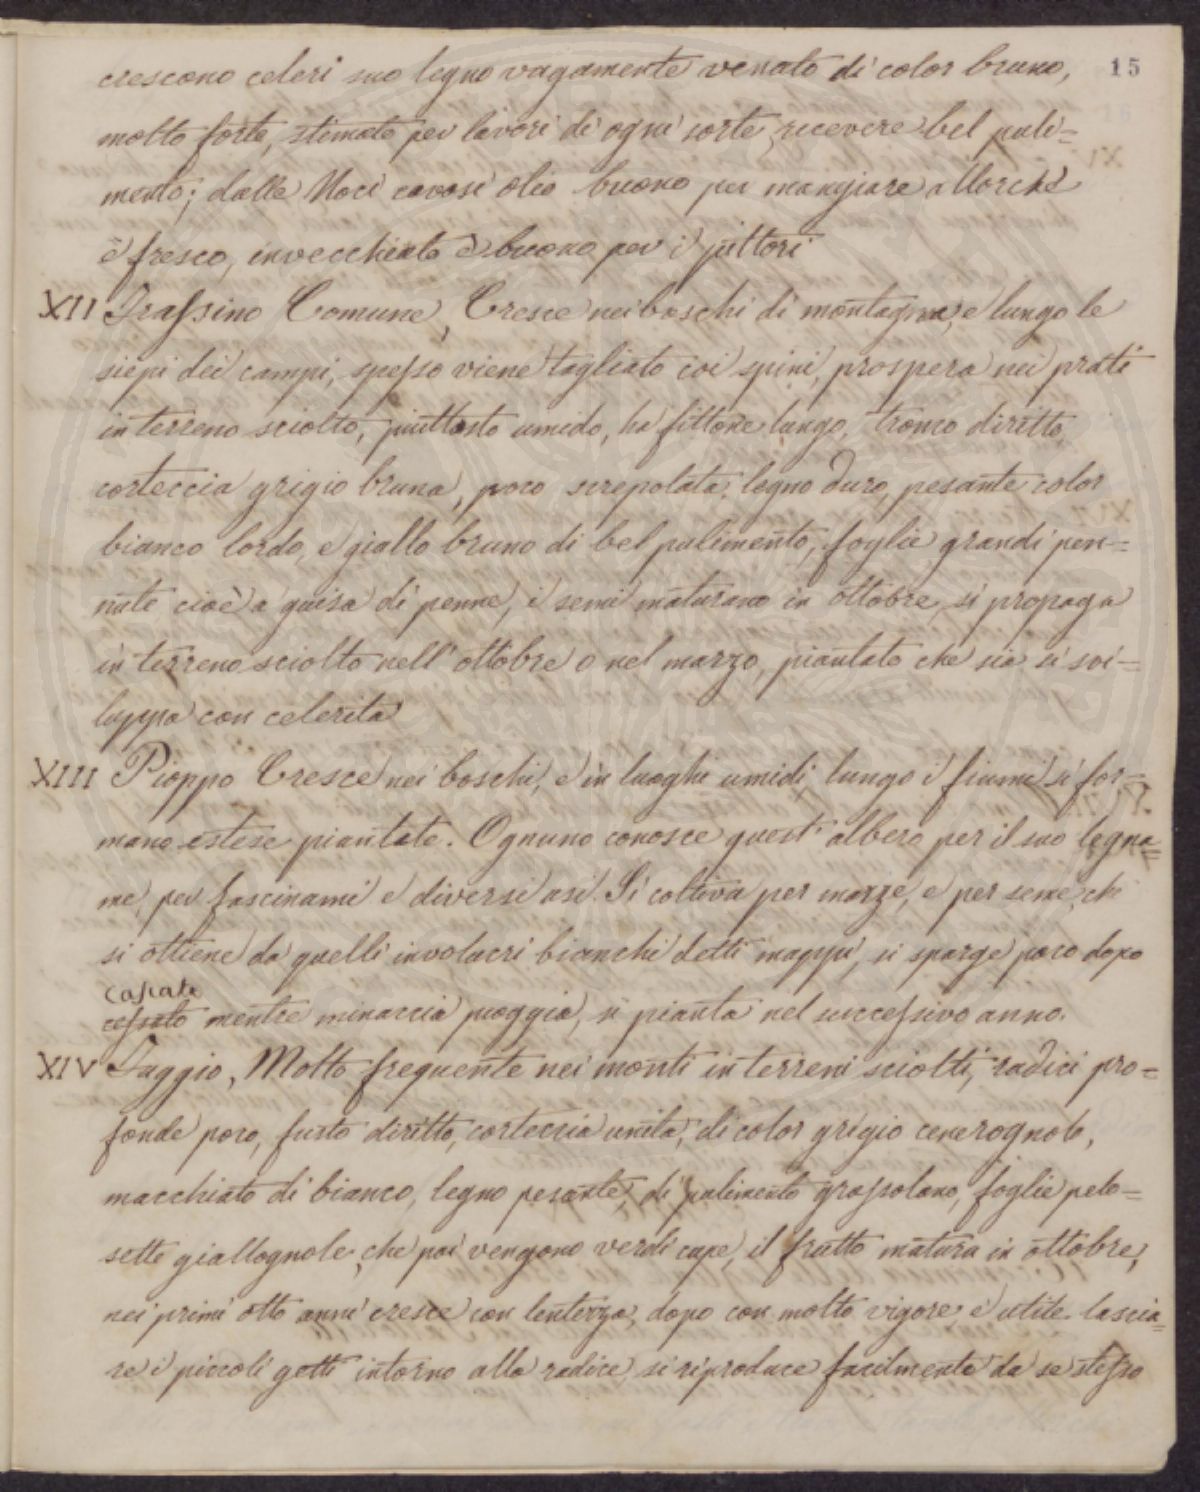 15
crescono celeri suo legno vagamente venato di color bruno,
molto forte, stimato per lavori di ogni sorte, ricevere bel puli=
mento; dalle Noci cavasi olio buono per mangiare allorchè
è fresco, invecchiato è buono per i pittori
XII Frassino Comune, Cresce nei boschi di montagna, e lungo le
siepi dei campi, spesso viene tagliato coi spini, prospera nei prati
in terreno sciolto, piuttosto umido, ha fittone lungo, tronco diritto,
corteccia grigio bruna, poco screpolata, legno duro, pesante color
bianco lordo, e giallo bruno di bel pulimento, foglie grandi pen=
nate cioè a guisa di penne, i semi maturano in ottobre, si propaga
in terreno sciolto nell' ottobre o nel marzo, piantato che sia si svi=
luppa con celerita
XIII Pioppo Cresce nei boschi, e in luoghi umidi lungo i fiumi si for=
mano estese piantate. Ognuno conosce quest' albero per il suo legna=
me, per fascinami e diversi usi. Si coltiva per marze, e per seme, che
si ottiene da quelli involucri bianchi detti mappi, si sparge poco dopo
cascata
mentre minaccia pioggia, si pianta nel successivo anno.
XIV Faggio, Molto frequente nei monti in terreni sciolti, radici pro=
fonde poco, fusto diritto, corteccia unita, di color grigio cenerognolo,
macchiato di bianco, legno pesante, di pulimento grossolano, foglie pelo=
sette giallognole, che poi vengono verdi cupe, il frutto matura in ottobre,
nei primi otto anni cresce con lentezza, dopo con molto vigore, è utile lascia=
re i piccoli getti intorno alla radice si riproduce facilmente da se stesso